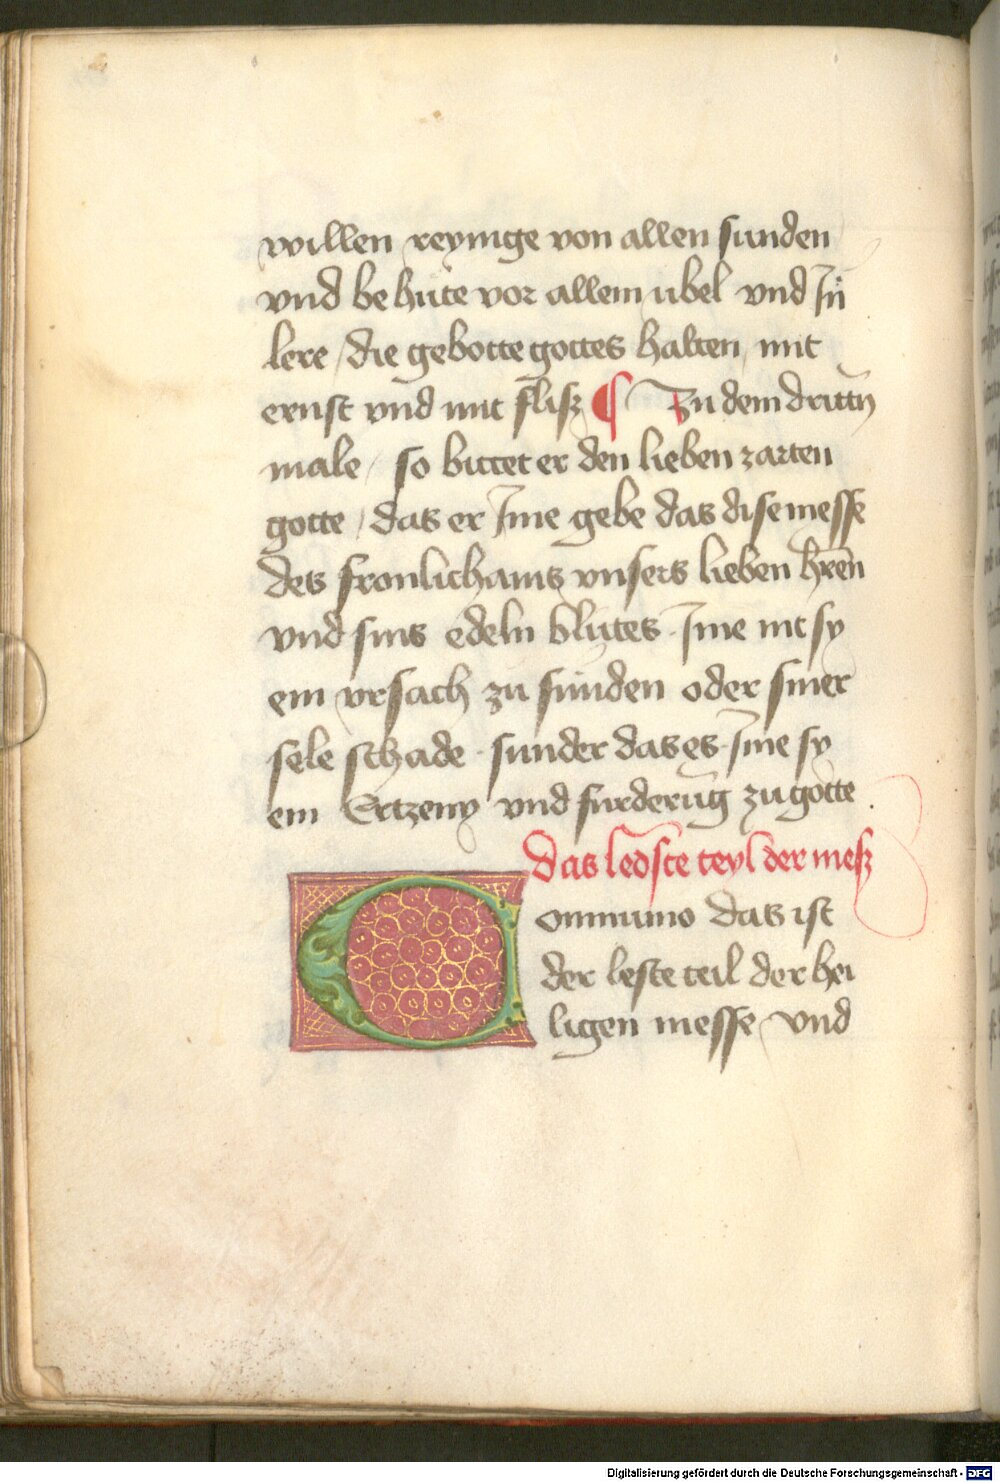 willen reynige von allen sunden
vnd be hůte vor allem ubel vnd Jn
lere / die gebotte gottes halten / mit
ernst vnd mit flisz ¶ Zu dem drittē
male / so bittet er den lieben zarten
gotte / das er Jme gebe das dise messe
des fronlichams vnsers lieben hrēn
vnd sins edeln blůtes · Jme nit sy
ein vrsach zů sůnden oder siner
sele schade · sunder das es Jme sy
ein Ertzeny vnd furderūg zu gotte .
das ledste teyl der mesz
Commumo das ist
der leste teil der hei
ligen messe / vnd
Digitalisierung gefördert durch die Deutsche Forschungsgemeinschaft - DFG